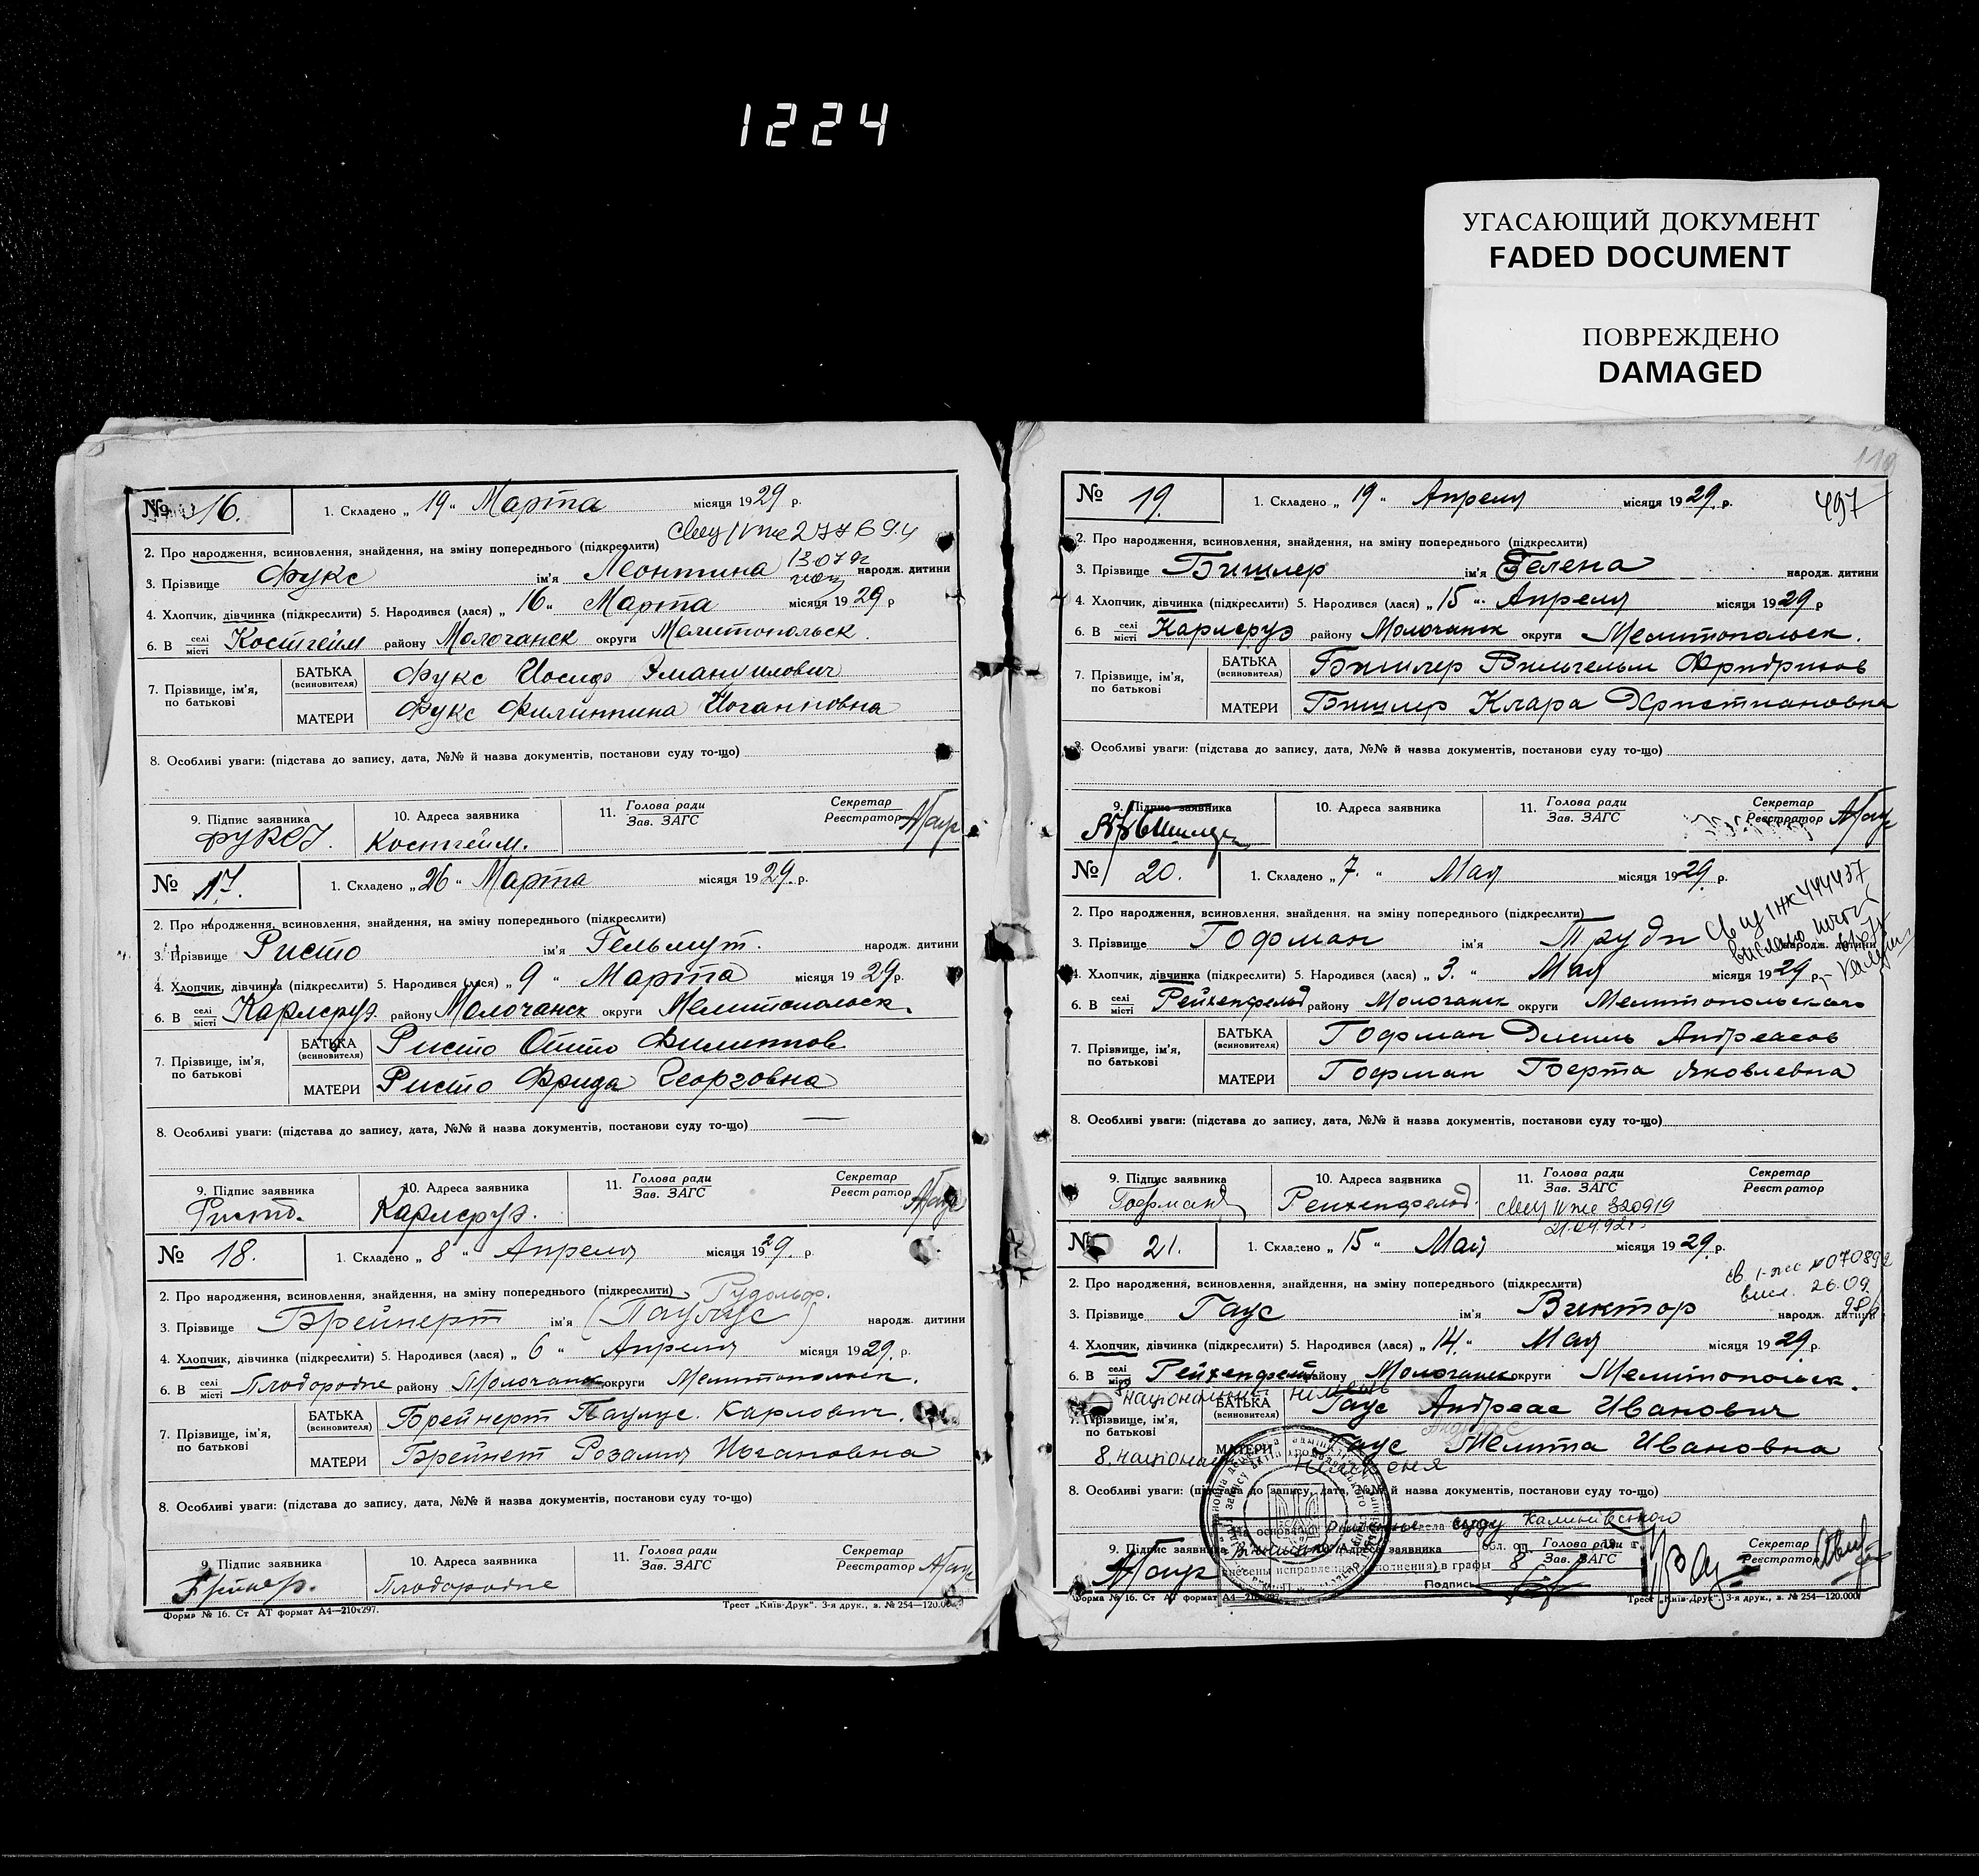 1224
УГАСАЮЩИЙ ДОКУМЕНТ
FADED DOCUMENT
ПОВРЕЖДЕНО
DAMAGED
№ 16. 1. Складено „ 19 “ Марта місяця 1929 р.
277694
2. Про народження, всиновлення, знайдення, на зміну попереднього (підкреслити)
13 07 92
3. Прізвище Фукс ім'я Леонтина народж. дитини
4. Хлопчик, дівчинка (підкреслити) 5. Народився (лася) „ 16 “ Марта місяця 1929 р
6. В селі місті Костгейм району Молочанск округи Мелитопольск.
7. Прізвище, ім'я, по батькові
БАТЬКА (всиновителя) Фукс Иосиф Эмануилович
МАТЕРИ Фукс Филиппина Иогановна
8. Особливі уваги: (підстава до запису, дата, №№ й назва документів, постанови суду то-що)
9. Підпис заявника 10. Адреса заявника 11. Голова ради Зав. ЗАГС Секретар Реєстратор
Костгейм.
№ 17. 1. Складено „ 26 “ Марта місяця 1929. р.
2. Про народження, всиновлення, знайдення, на зміну попереднього (підкреслити)
3. Прізвище Ристо ім'я Гельмут. народж. дитини
4. Хлопчик, дівчинка (підкреслити) 5. Народився (лася) „ 9 “ Марта місяця 1929 р.
6. В селі місті Карлсруэ району Молочанск округи Мелитопольск.
7. Прізвище, ім'я, по батькові
БАТЬКА (всиновителя) Ристо Отто Филиппов
МАТЕРИ Ристо Фрида Георговна
8. Особливі уваги: (підстава до запису, дата, №№ й назва документів, постанови суду то-що) —
9. Підпис заявника 10. Адреса заявника 11. Голова ради Зав. ЗАГС Секретар Реєстратор
Ристо. Карлсруэ.
№ 18. 1. Складено „ 8 “ Апреля місяця 1929. р.
2. Про народження, всиновлення, знайдення, на зміну попереднього (підкреслити) Рудольф.
3. Прізвище Брейнерт ім'я (Паулус) народж. дитини
4. Хлопчик, дівчинка (підкреслити) 5. Народився (лася) „ 6 “ Апреля місяця 1929. р.
6. В селі місті Плодородне району Молочанск округи Мелитопольск.
7. Прізвище, ім'я, по батькові
БАТЬКА (всиновителя) Брейнерт Паулус. Карлович.
МАТЕРИ Брейнет Розалия Иогановна
8. Особливі уваги: (підстава до запису, дата, №№ й назва документів, постанови суду то-що)
9. Підпис заявника 10. Адреса заявника 11. Голова ради Зав. ЗАГС Секретар Реєстратор
Плодородне
Форма № 16. Ст АТ формат А4—210х297. Трест „Київ-Друк“. 3-я друк., в. № 254—120.000
119
497
№ 19. 1. Складено „ 19 “ Апреля місяця 1929. р.
2. Про народження, всиновлення, знайдення, на зміну попереднього (підкреслити)
3. Прізвище Бишлер ім'я Гелена народж. дитини
4. Хлопчик, дівчинка (підкреслити) 5. Народився (лася) „ 15 “ Апреля місяця 1929 р
6. В селі місті Карлсруэ району Молочанск округи Мелитопольск.
7. Прізвище, ім'я, по батькові
БАТЬКА (всиновителя) Бишлер Вильгельм Фридрихов
МАТЕРИ Бишлер Клара Христиановна
8. Особливі уваги: (підстава до запису, дата, №№ й назва документів, постанови суду то-що)
9. Підпис заявника 10. Адреса заявника 11. Голова ради Зав. ЗАГС Секретар Реєстратор
№ 20. 1. Складено „ 7. “ Мая місяця 1929. р.
2. Про народження, всиновлення, знайдення, на зміну попереднього (підкреслити)
3. Прізвище Гофман ім'я Труди народж. дитини
4. Хлопчик, дівчинка (підкреслити) 5. Народився (лася) „ 3. “ Мая місяця 1929. р.
6. В селі місті Рейхенфельд району Молочанск округи Мелитопольского
7. Прізвище, ім'я, по батькові
БАТЬКА (всиновителя) Гофман Эмиль Андреасов
МАТЕРИ Гофман Берта Яковлевна
8. Особливі уваги: (підстава до запису, дата, №№ й назва документів, постанови суду то-що)
9. Підпис заявника 10. Адреса заявника 11. Голова ради Зав. ЗАГС Секретар Реєстратор
Гофман Рейхенфельд. 320919
№ 21. 1. Складено „ 15 “ Май місяця 1929. р.
2. Про народження, всиновлення, знайдення, на зміну попереднього (підкреслити)
26.09.
3. Прізвище Гаус ім'я Виктор народж. дитини
4. Хлопчик, дівчинка (підкреслити) 5. Народився (лася) „ 14 “ Мая місяця 1929. р.
6. В селі місті Рейхенфельд району Молочанск округи Мелитопольск.
7. Прізвище, ім'я, по батькові
БАТЬКА (всиновителя) Гаус Андреас Иванович
МАТЕРИ Гаус Мелита Ивановна
8. Особливі уваги: (підстава до запису, дата, №№ й назва документів, постанови суду то-що)
9. Підпис заявника 10. Адреса заявника 11. Голова ради Зав. ЗАГС Секретар Реєстратор
Подпись
Форма № 16. Ст АТ формат А4—210х297. Трест „Київ-Друк“. 3-я друк., в. № 254—120.000